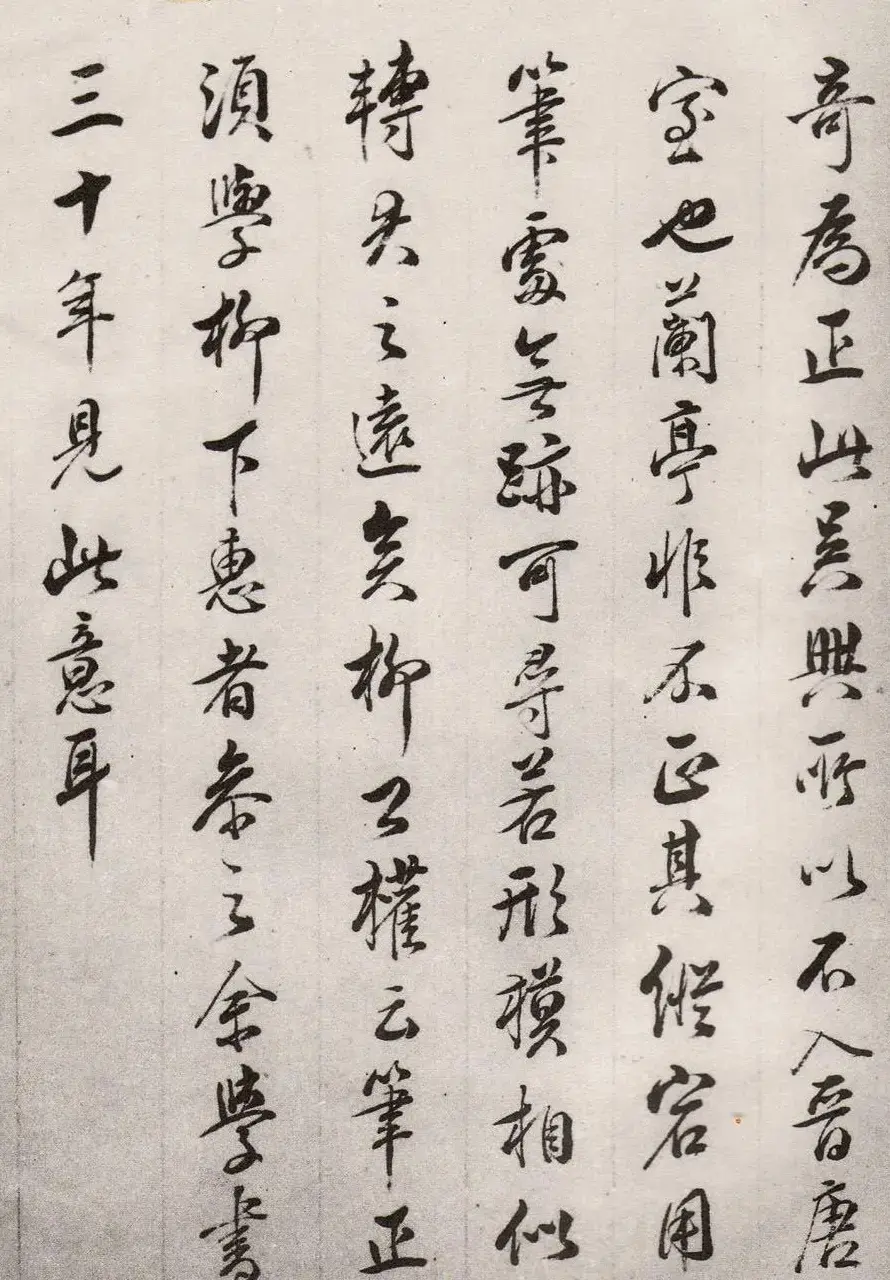 奇為正此吳興所以不入晉唐
室也蘭亭非不正其縱宕用
筆處無跡可尋若形模相似
轉失之遠矣柳公權云筆正
須學柳下惠者參之余學書
三十年見此意耳